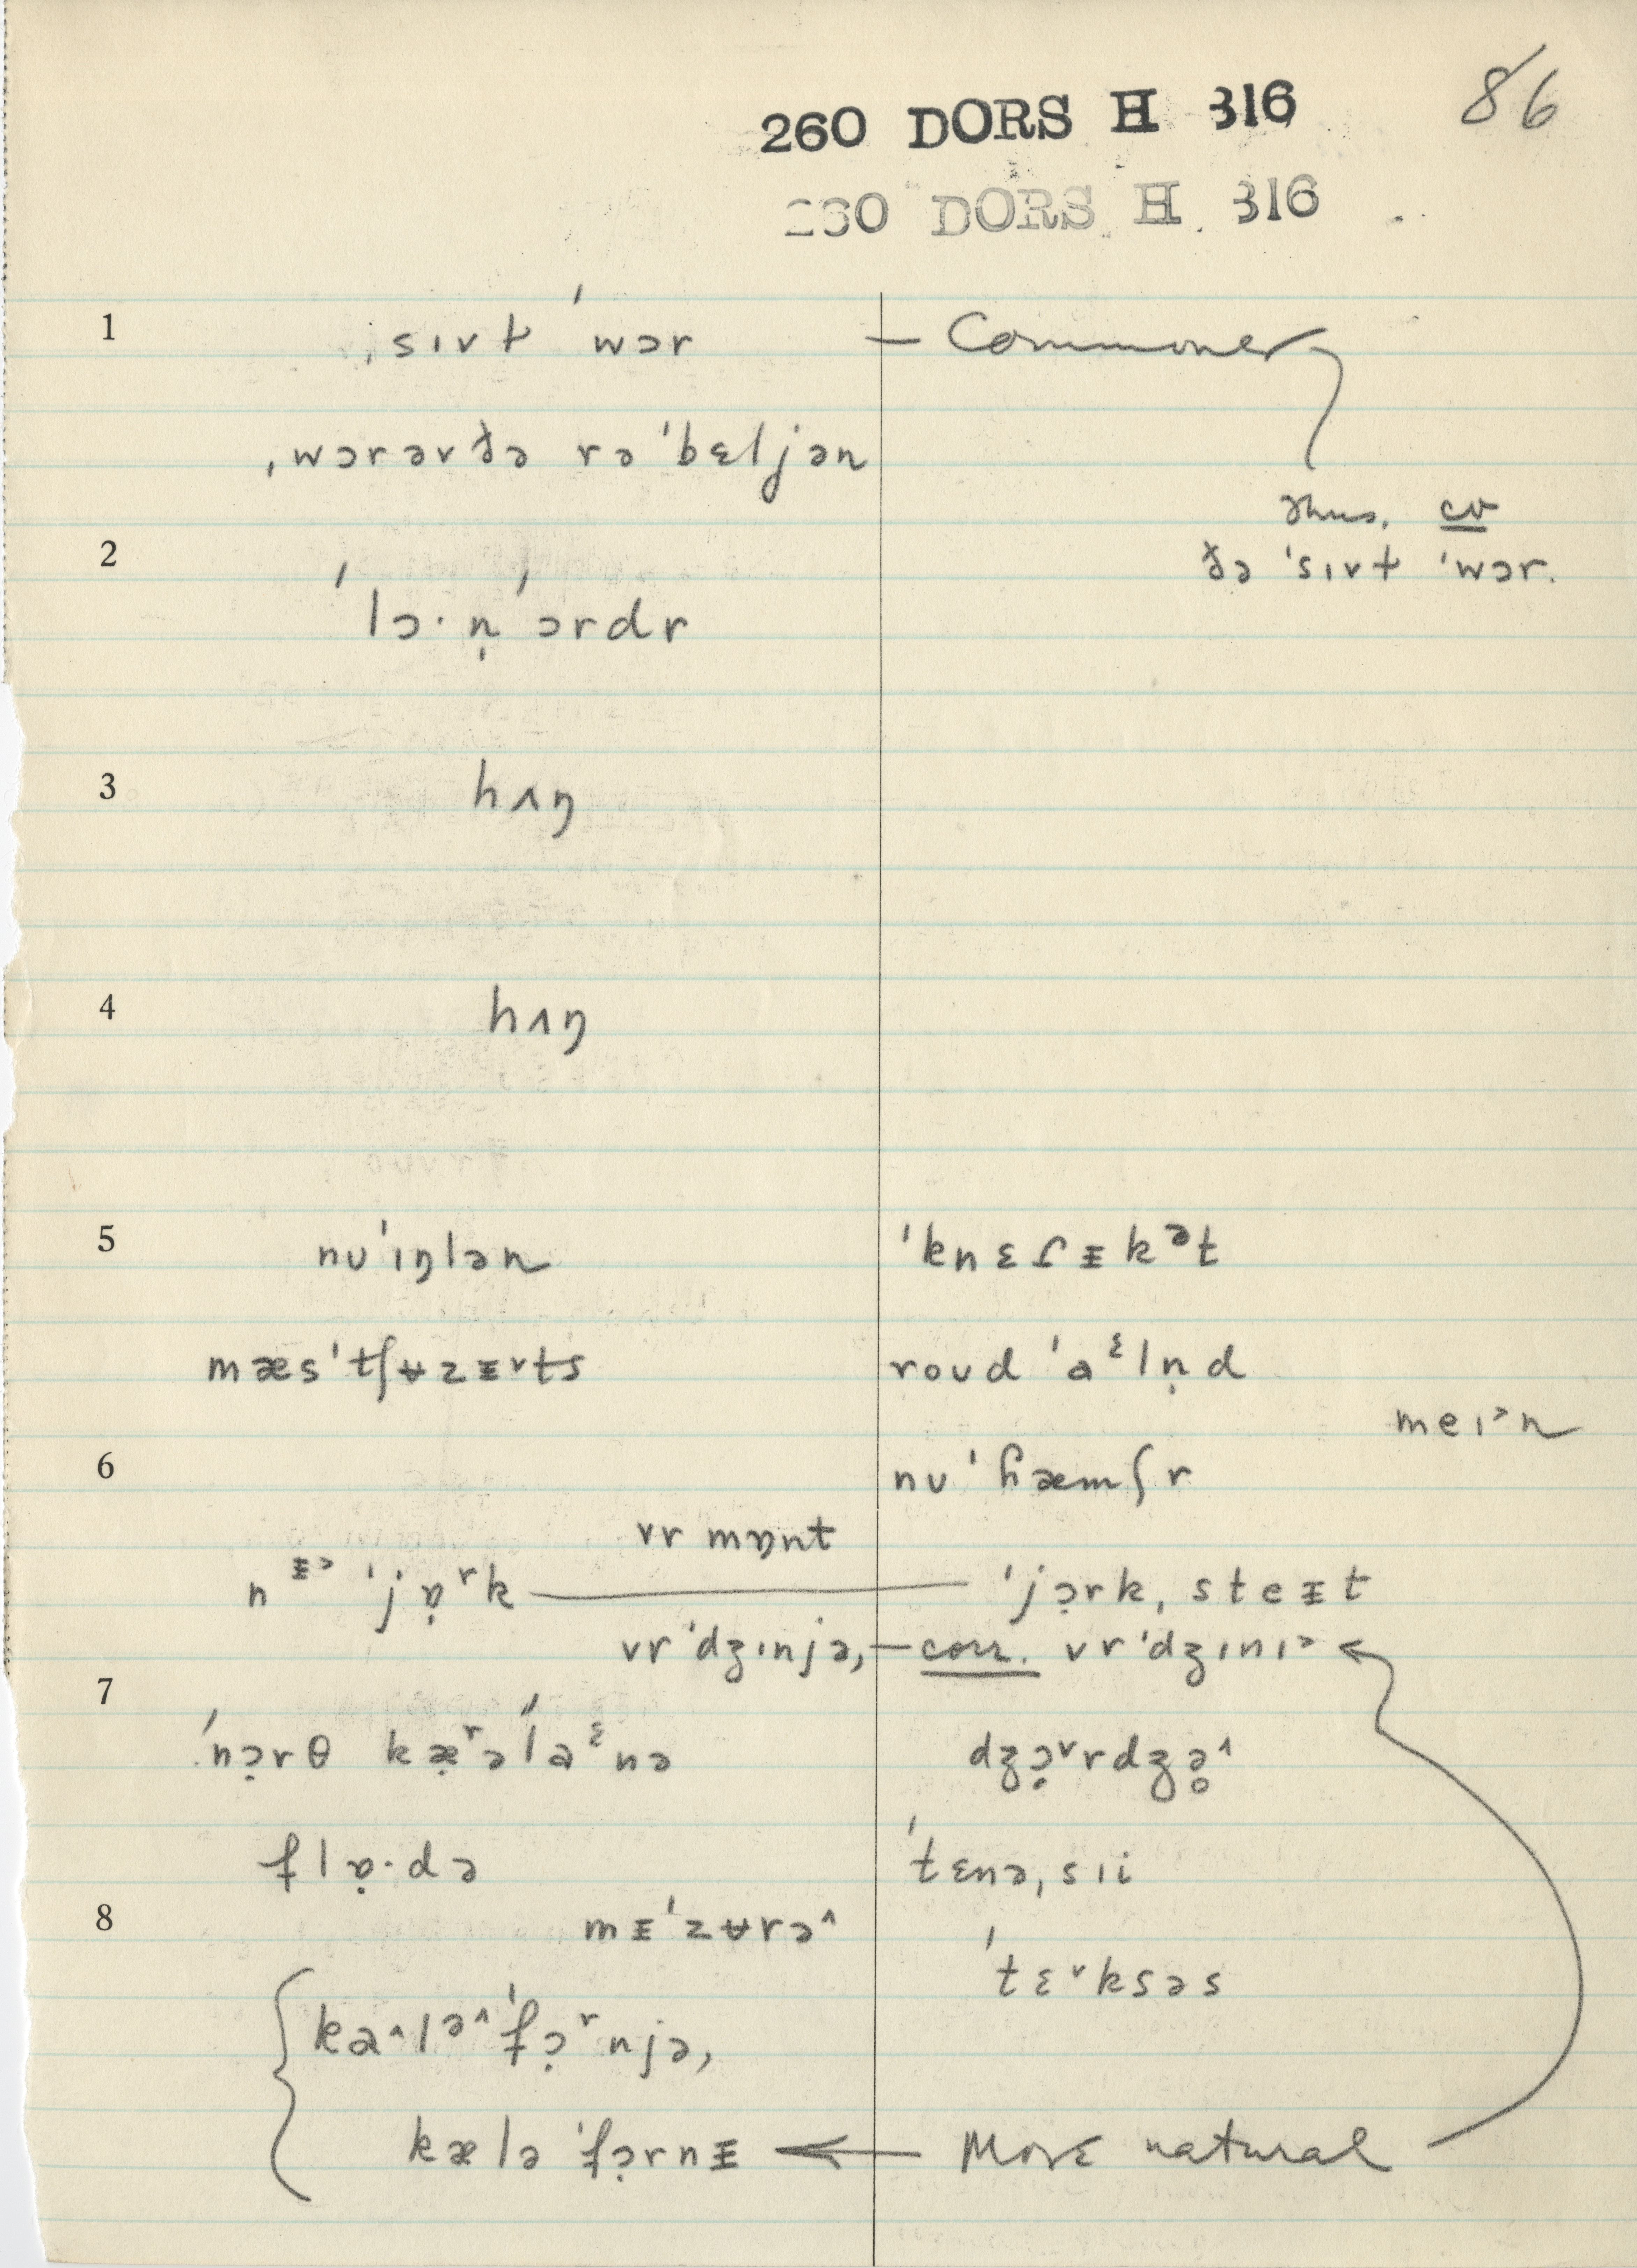 86
260 DORS H 316
260 DORS H 316
1 ˌsɪvɫ ˈwɔr — Commoner
ˌwɔrəvðə rəˈbɛljən
cv
2 ðə ˈsɪvɫ ˈwɔr.
ˈlɔ·n̩ ˈɔrdr
3 hʌŋ
4 hʌŋ
5 nuˈɪŋlən ˈknɛɾᵻkᵊt
mæsˈtʃʉzᵻˬts roud ˈaᵋln̩d
meɪᵊn
6 nuˈɦæmʃr
vrmɒnt
nᵻᵊ ˈjɒ̣ʳk — ˈjɔ̣rk, steᵻt
vrˈdʒɪnjə, — corr. vrˈdʒɪnɪᵊ
7 ˈnɔ̣rθ kæ̣ʳəˈlaᵋnə dʒɔ̣ˬrdʒə̥^
flɒ̣·də ˈtɛnə, sɪi
8 mᵻˈzʉrə^
ˈtɛˬksəs
ka^lᵊ^ˈfɔ̣ʳnjə,
kæləˈfɔ̣rnᵻ ← More natural